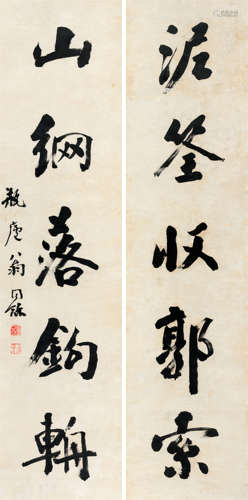 泥筌收郭索
山網落鉤輈
瓶廬翁同龢